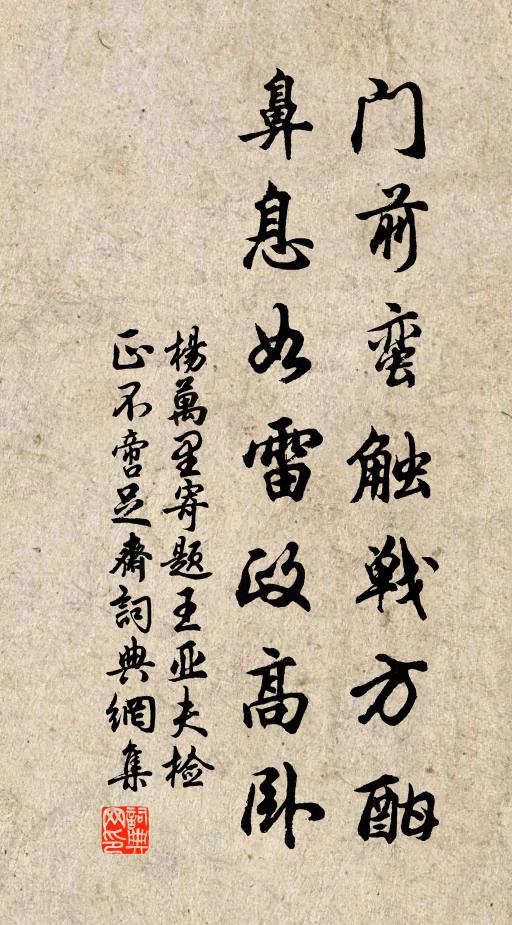 门前蛮触战方酣
鼻息如雷政高卧
杨萬里寄题王亚夫检
正不啻足齋詞典網集
詞典网印